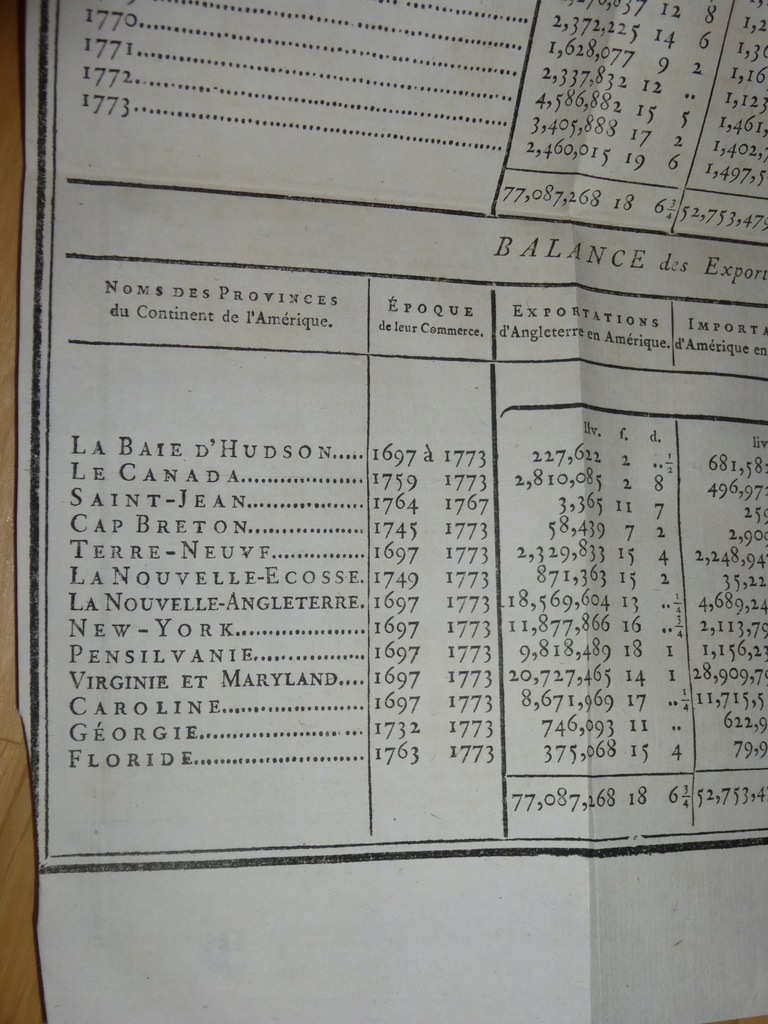 1770
1771
1772
1773
12 8
2,372,225 14 6
1,628,077 9 2
2,337,832 12 ..
4,586,882 15 5
3,405,888 17 2
2,460,015 19 6
77,087,268 18 6¾ 52,753,479
BALANCE des Export
NOMS DES PROVINCES
du Continent de l'Amérique.
ÉPOQUE
de leur Commerce.
EXPORTATIONS
d'Angleterre en Amérique.
IMPORTA
d'Amérique en
liv. ſ. d. liv
LA BAIE D'HUDSON..... 1697 à 1773 227,622 2 ..½ 681,58
LE CANADA 1759 1773 2,810,085 2 8 496,97
SAINT-JEAN 1764 1767 3,365 11 7 259
CAP BRETON 1745 1773 58,439 7 2 2,90
TERRE-NEUVE 1697 1773 2,329,833 15 4 2,248,94
LA NOUVELLE-ECOSSE. 1749 1773 871,363 15 2 35,22
LA NOUVELLE-ANGLETERRE. 1697 1773 18,569,604 13 ..¼ 4,689,24
NEW-YORK 1697 1773 11,877,866 16 ..¾ 2,113,79
PENSILVANIE 1697 1773 9,818,489 18 1 1,156,23
VIRGINIE ET MARYLAND.... 1697 1773 20,727,465 14 1 28,909,7
CAROLINE 1697 1773 8,671,969 17 ..¼ 11,715,5
GÉORGIE 1732 1773 746,093 11 .. 622,9
FLORIDE 1763 1773 375,068 15 4 79,9
77,087,268 18 6¾ 52,753,4